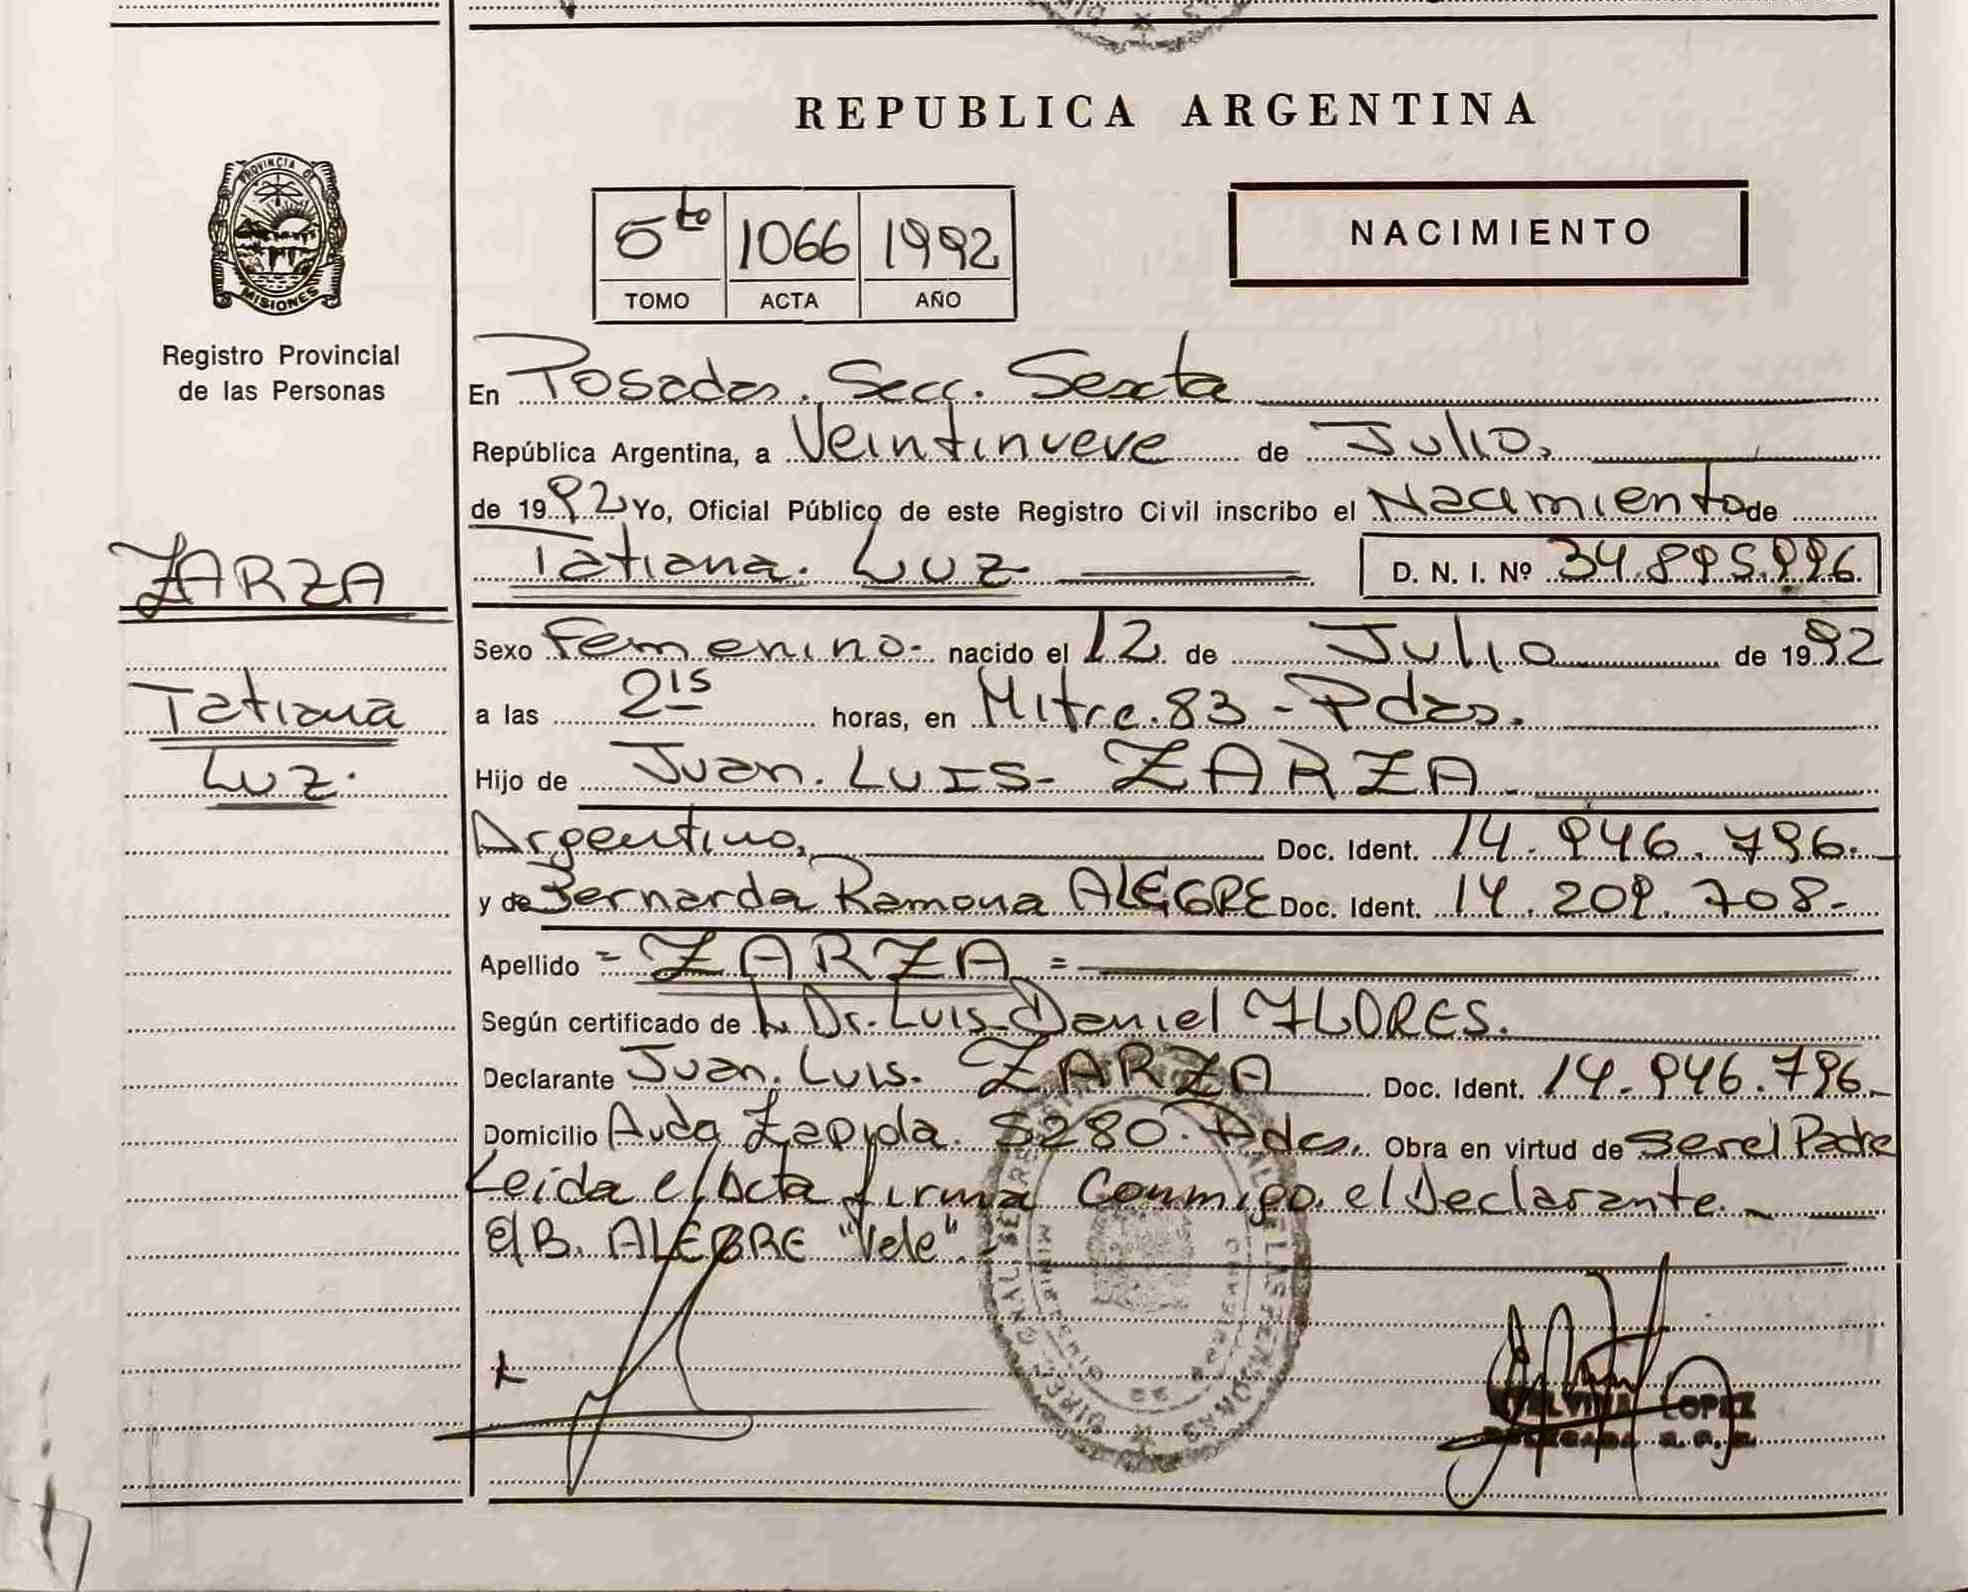 REPUBLICA ARGENTINA
PROVINCIA DE
MISIONES
Registro Provincial
de las Personas
5to 1066 1992
TOMO ACTA AÑO
NACIMIENTO
En Posadas. Secc. Sexta
República Argentina, a Veintinueve de Julio.
de 1992 Yo, Oficial Público de este Registro Civil inscribo el Nacimiento de
Tatiana. Luz D. N. I. Nº 34.895.996.
ZARZA
Tatiana
Luz.
Sexo Femenino- nacido el 12 de Julio de 1992
a las 2 15 horas, en Mitre.83 - Pdas.
Hijo de Juan. LUIS- ZARZA
Argentino. Doc. Ident. 14.946.796.-
y de Bernarda Ramona ALEGRE Doc. Ident. 14.209.708-
Apellido = ZARZA =
Según certificado de Dr. Luis Daniel FLORES.
Declarante Juan. Luis. ZARZA Doc. Ident. 14.946.796.-
Domicilio Avda Zapiola. 5280. Pdas. Obra en virtud de ser el Padre
Leida el Acta firma Conmigo el Declarante.-
E/B. ALEGRE "Vale".
LOPEZ